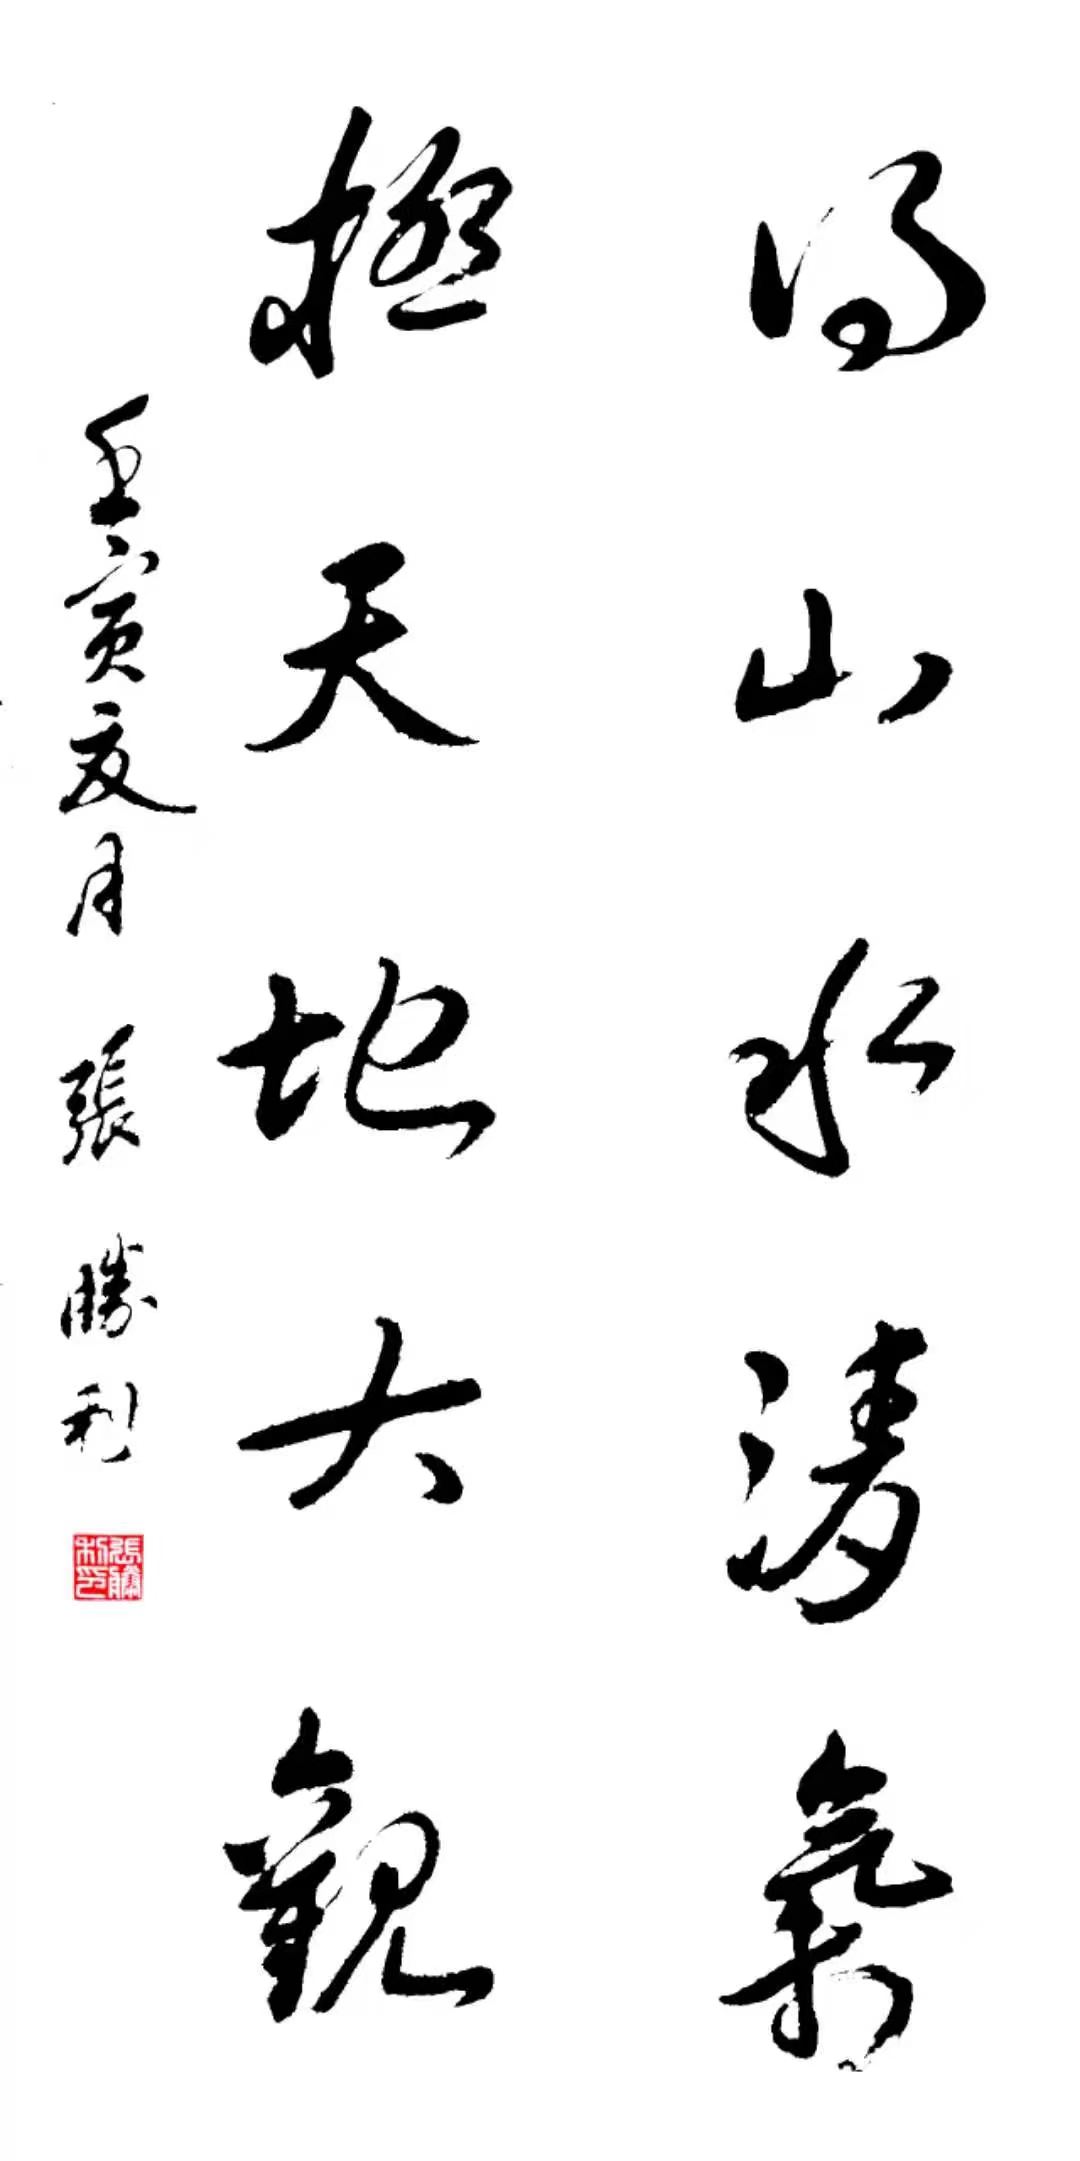 得山水清氣
極天地大觀
壬寅夏月 張勝利
張勝利印